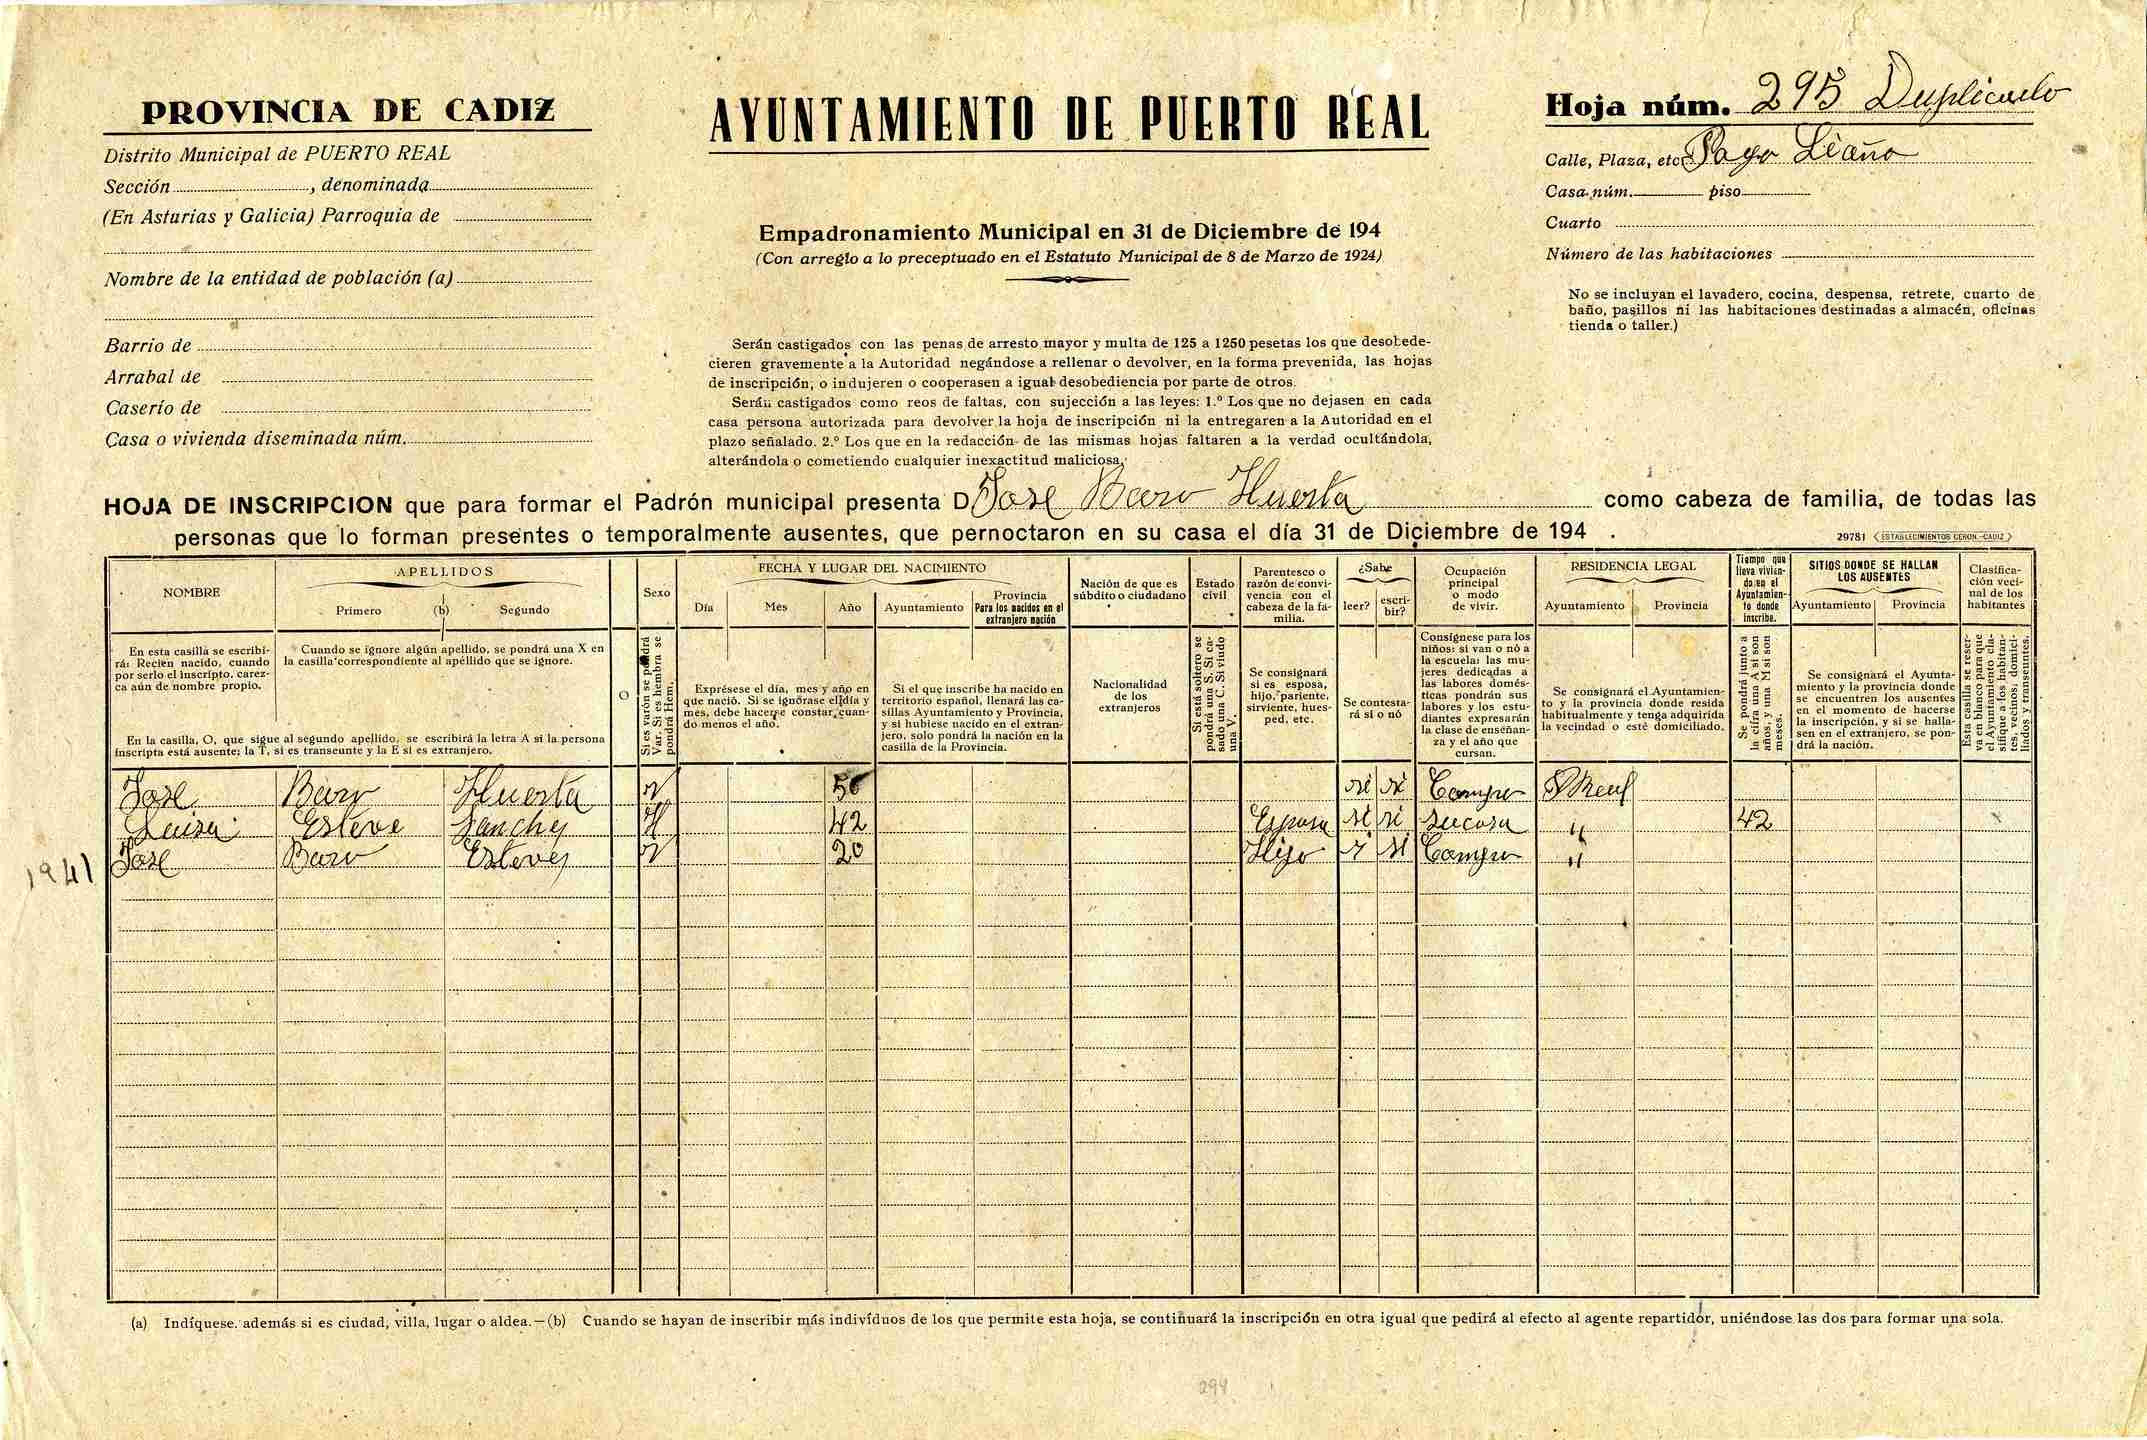 PROVINCIA DE CADIZ
Distrito Municipal de PUERTO REAL
Sección , denominada
(En Asturias y Galicia) Parroquia de
Nombre de la entidad de población (a)
Barrio de
Arrabal de
Caserío de
Casa o vivienda diseminada núm.
AYUNTAMIENTO DE PUERTO REAL
Empadronamiento Municipal en 31 de Diciembre de 194
(Con arreglo a lo preceptuado en el Estatuto Municipal de 8 de Marzo de 1924)
Serán castigados con las penas de arresto mayor y multa de 125 a 1250 pesetas los que desobede-
cieren gravemente a la Autoridad negándose a rellenar o devolver, en la forma prevenida, las hojas
de inscripción, o indujeren o cooperasen a igual desobediencia por parte de otros.
Serán castigados como reos de faltas, con sujección a las leyes: 1.º Los que no dejasen en cada
casa persona autorizada para devolver la hoja de inscripción ni la entregaren a la Autoridad en el
plazo señalado. 2.º Los que en la redacción de las mismas hojas faltaren a la verdad ocultándola,
alterándola o cometiendo cualquier inexactitud maliciosa.
Hoja núm. 295 Duplicado
Calle, Plaza, etc. Pago Liaño
Casa núm. piso
Cuarto
Número de las habitaciones
No se incluyan el lavadero, cocina, despensa, retrete, cuarto de
baño, pasillos ni las habitaciones destinadas a almacén, oficinas
tienda o taller.)
HOJA DE INSCRIPCION que para formar el Padrón municipal presenta D Jose Baro Huerta como cabeza de familia, de todas las
personas que lo forman presentes o temporalmente ausentes, que pernoctaron en su casa el día 31 de Diciembre de 194 .
29781 ESTABLECIMIENTOS CERON.-CADIZ
NOMBRE
APELLIDOS
Primero (b) Segundo
Sexo
FECHA Y LUGAR DEL NACIMIENTO
Día Mes Año Ayuntamiento
Provincia
Para los nacidos en el
extranjero nación
Nación de que es
súbdito o ciudadano
Estado
civil
Parentesco o
razón de convi-
vencia con el
cabeza de la fa-
milia.
¿Sabe
leer? escri-
bir?
Ocupación
principal
o modo
de vivir.
RESIDENCIA LEGAL
Ayuntamiento Provincia
Tiempo que
lleva vivien-
do en el
Ayuntamien-
to donde
inscribe.
SITIOS DONDE SE HALLAN
LOS AUSENTES
Ayuntamiento Provincia
Clasifica-
ción veci-
nal de los
habitantes
En esta casilla se escribi-
rá: Recién nacido, cuando
por serlo el inscripto, carez-
ca aún de nombre propio.
Cuando se ignore algún apellido, se pondrá una X en
la casilla correspondiente al apellido que se ignore.
En la casilla, O, que sigue al segundo apellido, se escribirá la letra A si la persona
inscripta está ausente; la T, si es transeunte y la E si es extranjero.
O
Si es varón se pondrá
Var. Si es hembra se
pondrá Hem.
Exprésese el día, mes y año en
que nació. Si se ignorase el día y
mes, debe hacerse constar cuan-
do menos el año.
Si el que inscribe ha nacido en
territorio español, llenará las ca-
sillas Ayuntamiento y Provincia,
y si hubiese nacido en el extran-
jero, solo pondrá la nación en la
casilla de la Provincia.
Nacionalidad
de los
extranjeros
Si está soltero se
pondrá una S. Si ca-
sado una C. Si viudo
una V.
Se consignará
si es esposa,
hijo, pariente,
sirviente, hues-
ped, etc.
Se contesta-
rá si o nó
Consígnese para los
niños: si van o nó a
la escuela: las mu-
jeres dedicadas a
las labores domés-
ticas pondrán sus
labores y los estu-
diantes expresarán
la clase de enseñan-
za y el año que
cursan.
Se consignará el Ayuntamien-
to y la provincia donde resida
habitualmente y tenga adquirida
la vecindad o esté domiciliado.
Se pondrá junto a
la cifra una A si son
años, y una M si son
meses.
Se consignará el Ayunta-
miento y la provincia donde
se encuentren los ausentes
en el momento de hacerse
la inscripción, y si se halla-
sen en el extranjero, se pon-
drá la nación.
Esta casilla se reser-
va en blanco para que
el Ayuntamiento cla-
sifique a los habitan-
tes, vecinos, domici-
liados y transeuntes.
Jose Baro Huerta V 56 si si Campo P Real
Luisa Esteve Sanchez H 42 Esposa si si su casa " 42
1941 Jose Baro Estevez V 20 Hijo si si Campo "
(a) Indíquese además si es ciudad, villa, lugar o aldea.—(b) Cuando se hayan de inscribir más indivíduos de los que permite esta hoja, se continuará la inscripción en otra igual que pedirá al efecto al agente repartidor, uniéndose las dos para formar una sola.
294